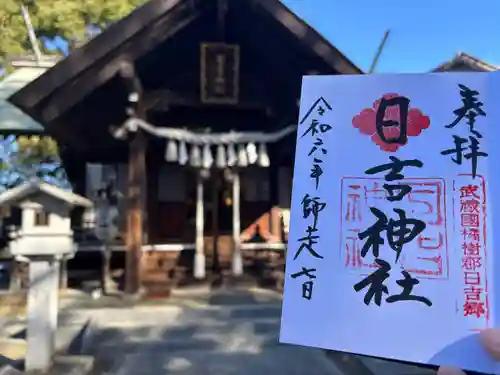 奉拝
武蔵国橘樹郡日吉郷
日吉神社
令和六年師走七日